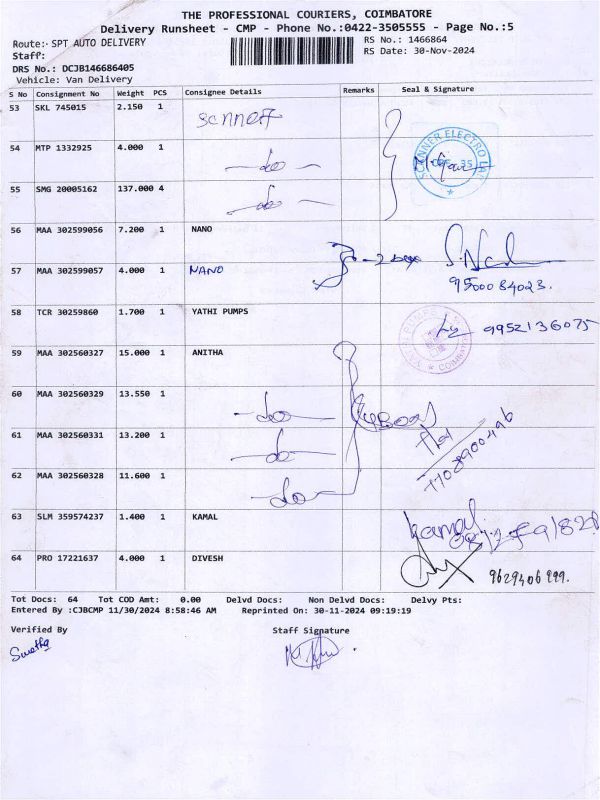 THE PROFESSIONAL COURIERS, COIMBATORE
Delivery Runsheet - CMP - Phone No.:0422-3505555 - Page No.:5
Route: SPT AUTO DELIVERY
RS No.: 1466864
Staff:
RS Date: 30-Nov-2024
DRS No.: DCJB146686405
Vehicle: Van Delivery
S No Consignment No Weight PCS Consignee Details Remarks Seal & Signature
53 SKL 745015 2.150 1
54 MTP 1332925 4.000 1 do
SCANNER ELECTRO
55 SMG 20005162 137.000 4 do
56 MAA 302599056 7.200 1 NANO
57 MAA 302599057 4.000 1 NANO
9500084023.
58 TCR 30259860 1.700 1 YATHI PUMPS 9952136075
COIMBATORE
59 MAA 302560327 15.000 1 ANITHA
60 MAA 302560329 13.550 1 do
61 MAA 302560331 13.200 1 do
7708900496
62 MAA 302560328 11.600 1 do
63 SLM 359574237 1.400 1 KAMAL Kamal
64 PRO 17221637 4.000 1 DIVESH 9629406999.
Tot Docs: 64 Tot COD Amt: 0.00 Delvd Docs: Non Delvd Docs: Delvy Pts:
Entered By :CJBCMP 11/30/2024 8:58:46 AM Reprinted On: 30-11-2024 09:19:19
Verified By Staff Signature
Swetha